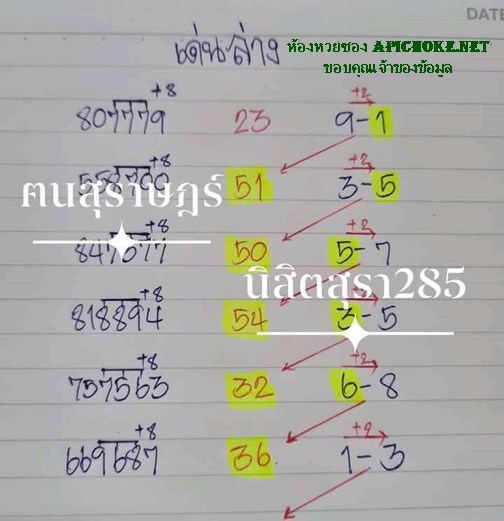 DATE
ห้องหวยซอง APICHOKE.NET
ขอบคุณเจ้าของข้อมูล
เด่นล่าง
+8 +2
807779 23 9-1
+8 +2
51 3-5
ฅนสุราษฎร์
+8 +2
50 5-7
นิสิตสุรา285
+8 +2
818894 54 3-5
+8 +2
757563 32 6-8
+8 +2
669687 36 1-3